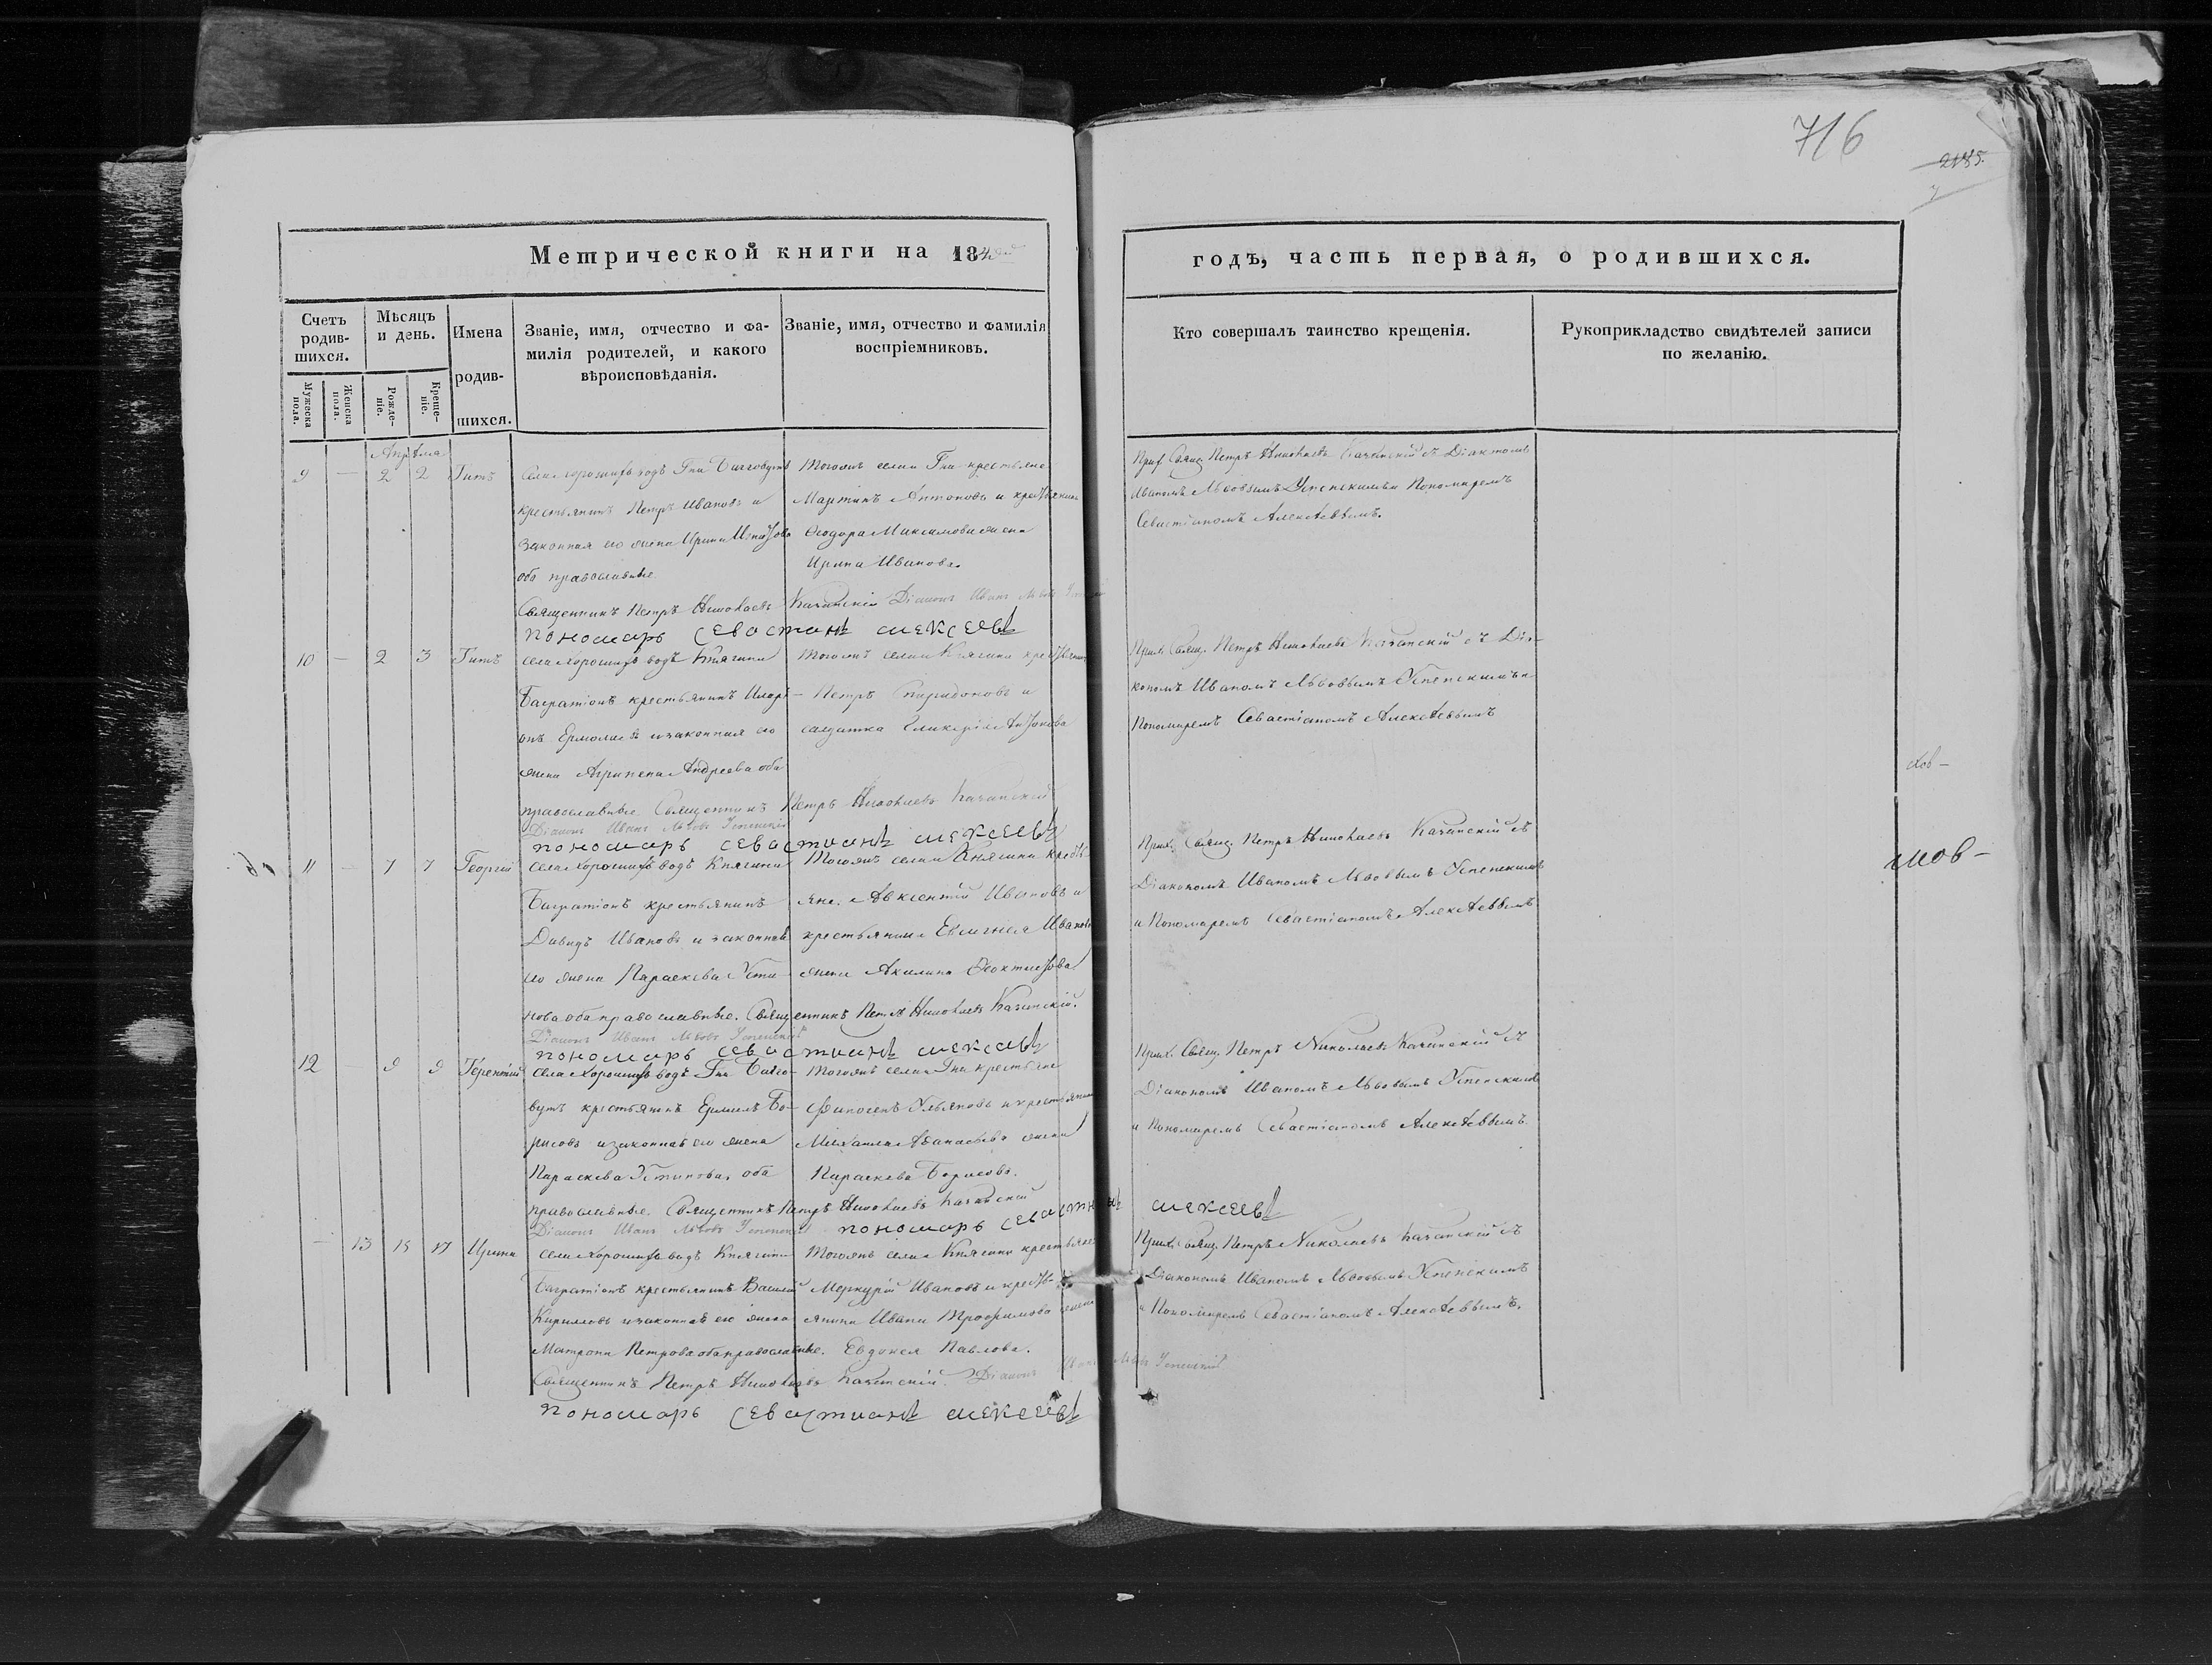 716
2185.
Метрической книги на 184
годъ, часть первая, о родившихся.
Счетъ родив-шихся.
Мужеска пола.
Женска пола.
Мѣсяцъ и день.
Рожде-ніе.
Креще-ніе.
Имена родив-шихся.
Званіе, имя, отчество и фа-
милія родителей, и какого
вѣроисповѣданія.
Званіе, имя, отчество и фамилія
воспріемниковъ.
Кто совершалъ таинство крещенія.
Рукоприкладство свидѣтелей записи
по желанію.
Апрѣля
9 — 2 2 Титъ
села Хорошихъ водъ Гна
крестьянинъ Петръ Ивановъ и
законная его жена Ирина
оба православные
Тогожъ села Гна крестьяне
Мартинъ Антоновъ и крестьянина
Ѳеодора Максимова жена
Ирина Иванова.
Прих. Свящ. Петръ Николаевъ Казанскій съ Діакономъ
Иваномъ Львовымъ Успенскимъ и Пономаремъ
Севастіаномъ Алексѣевымъ.
Священникъ Петръ Николаевъ Казанскій Діаконъ Иванъ Львовъ
пономарь севастианъ алексеевъ
10 — 2 3 Титъ
села Хорошихъ водъ Княгини
Багратіонъ крестьянинъ Илари-
онъ Ермолаевъ и законная его
жена Агрипена Андреева оба
православные
Тогожъ села Княгини крестьянинъ
Петръ Спиридоновъ и
салдатка Гликерія Антонова
Прих. Свящ. Петръ Николаевъ Казанскій съ Діа-
кономъ Иваномъ Львовымъ Успенскимъ и
Пономаремъ Севастіаномъ Алексѣевымъ
Священникъ Петръ Николаевъ Казанскій
Діаконъ Иванъ Львовъ Успенскій
пономарь севастианъ алексеевъ
11 — 7 7 Георгій
села Хорошихъ водъ Княгини
Багратіонъ крестьянинъ
Давидъ Ивановъ и законная
его жена Параскева Усти-
нова оба православные.
Тогожъ села Княгини кресть-
яне Авксентій Ивановъ и
крестьянина Евсигнея Иванова
жена Акилина Ѳеоктистова
Прих. Свящ. Петръ Николаевъ Казанскій съ
Діакономъ Иваномъ Львовымъ Успенскимъ
и Пономаремъ Севастіаномъ Алексѣевымъ
Священникъ Петръ Николаевъ Казанскій.
Діаконъ Иванъ Львовъ Успенскій
пономарь севастианъ алексеевъ
12 9 9 Терентій
села Хорошихъ водъ Гна
крестьянинъ Ермилъ Бо-
рисовъ и законная его жена
Параскева Устинова, оба
православные.
Тогожъ села Гна крестьяне
Финогенъ Ульяновъ и крестьянина
Михаила Аѳанасьева жена
Параскева Борисова.
Прих. Свящ. Петръ Николаевъ Казанскій съ
Діакономъ Иваномъ Львовымъ Успенскимъ
и Пономаремъ Севастіаномъ Алексѣевымъ.
Священникъ Петръ Николаевъ Казанскій
Діаконъ Иванъ Львовъ Успенскій пономарь севастианъ алексеевъ
— 13 15 17 Ирина
села Хорошихъ водъ Княгини
Багратіонъ крестьянинъ Василій
Кирилловъ и законная его жена
Матрона Петрова оба православные.
Тогожъ села Княгини крестьяне
Меркурій Ивановъ и кресть-
янина Ивана Трофимова жена
Евдокея Павлова.
Прих. Свящ. Петръ Николаевъ Казанскій съ
Діакономъ Иваномъ Львовымъ Успенскимъ
и Пономаремъ Севастіаномъ Алексѣевымъ.
Священникъ Петръ Николаевъ Казанскій. Діаконъ Иванъ Львовъ Успенскій
пономарь севастианъ алексеевъ